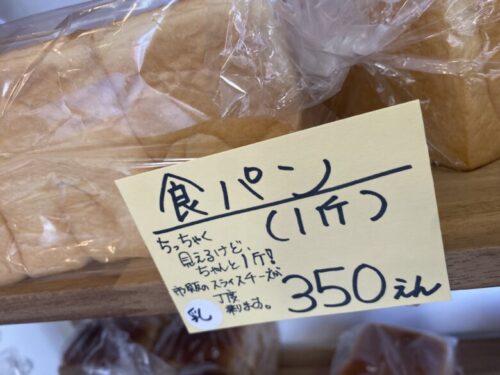 食パン
(1斤)
ちっちゃく
見えるけど、
ちゃんと1斤!!
市販のスライスチーズが
丁度
乗ります。
350えん
乳